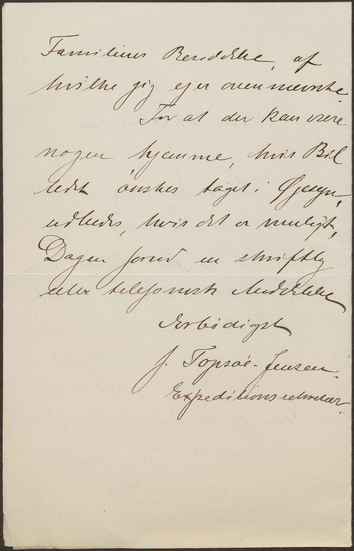 Familiens Besiddelse, af
hvilke jeg ejer ovennævnte.
For at der kan være
nogen hjemme, hvis Bil
ledet ønskes taget i Øjesyn,
udbedes, hvis det er muligt,
Dagen forud en skriftlig
eller telefonisk Meddelelse
Ærbødigst
J. Topsøe-Jensen.
Expeditionssekretær.